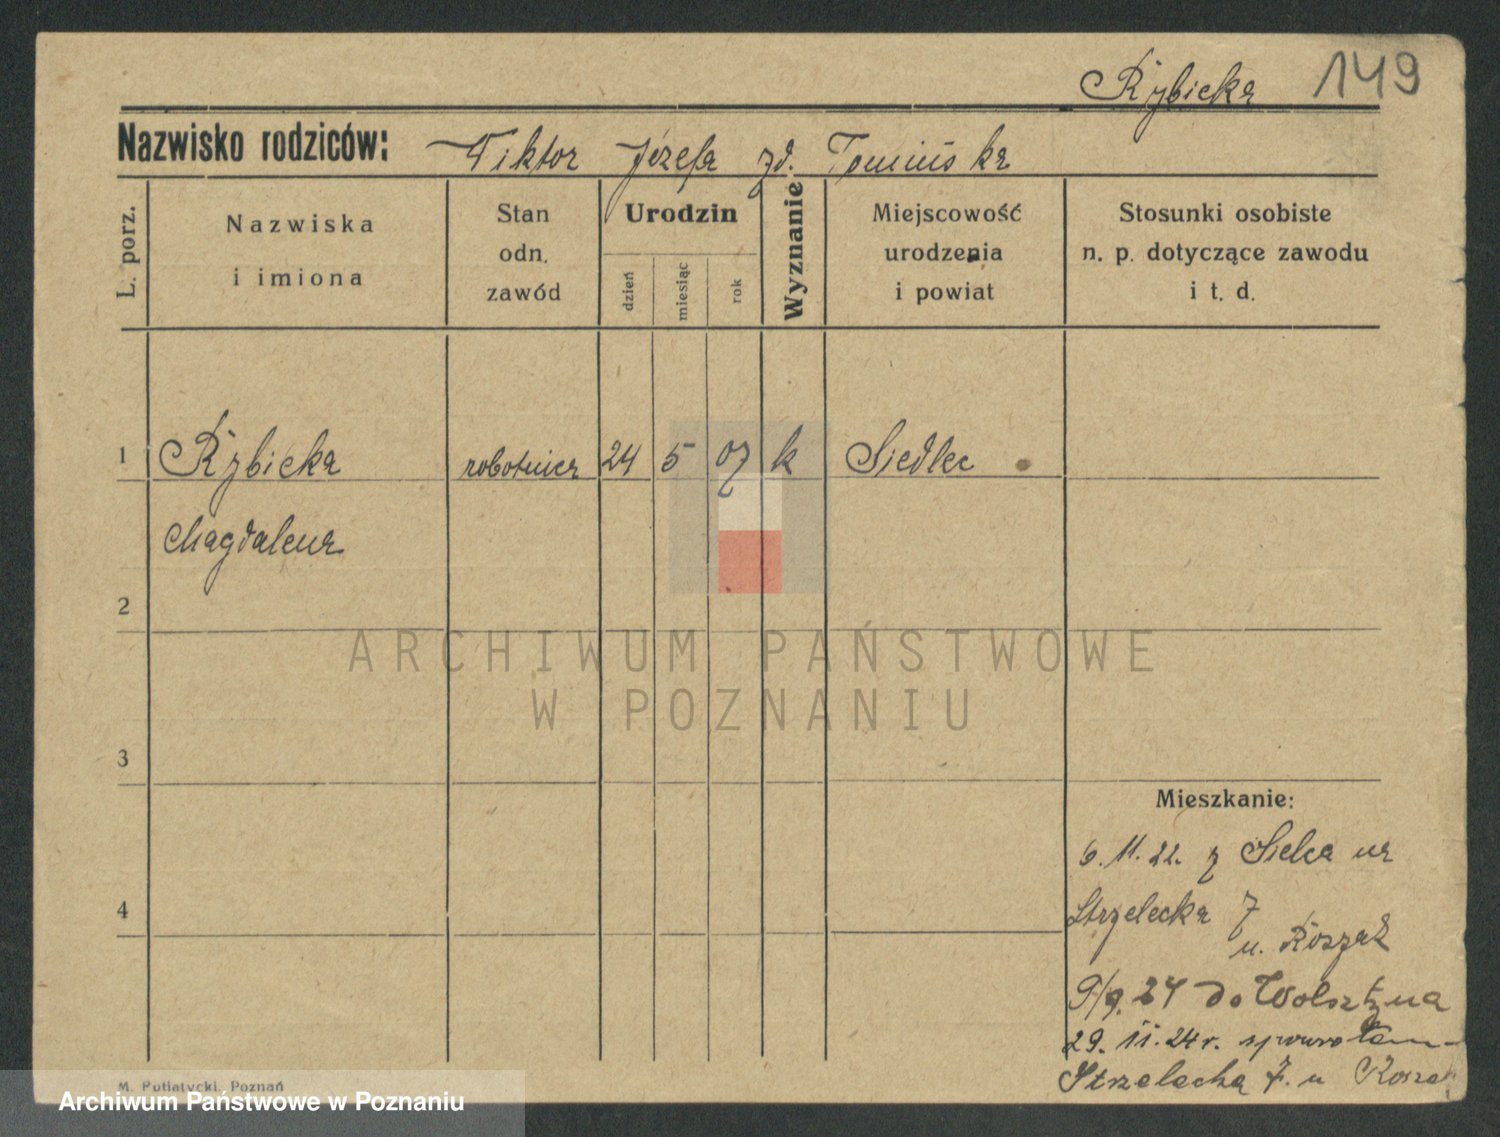 149
Rybicka
Nazwisko rodziców: Wiktor Józefa zd. Tomińska
L. porz.
Nazwiska
i imiona
Stan
odn.
zawód
Urodzin
dzień
miesiąc
rok
Wyznanie
Miejscowość
urodzenia
i powiat
Stosunki osobiste
n. p. dotyczące zawodu
i t. d.
1 Rybicka robotnica 24 5 07 k Siedlec
Magdalena
2
ARCHIWUM PAŃSTWOWE
W POZNANIU
3
Mieszkanie:
6. 11. 22. z Sielca na
4
Strzelecka 7
u. Roszak
9/9. 24 do Wolsztyna
29. 11. 24 r. spowrotem
Strzelecka 7. u
M. Putiatycki, Poznań
Archiwum Państwowe w Poznaniu